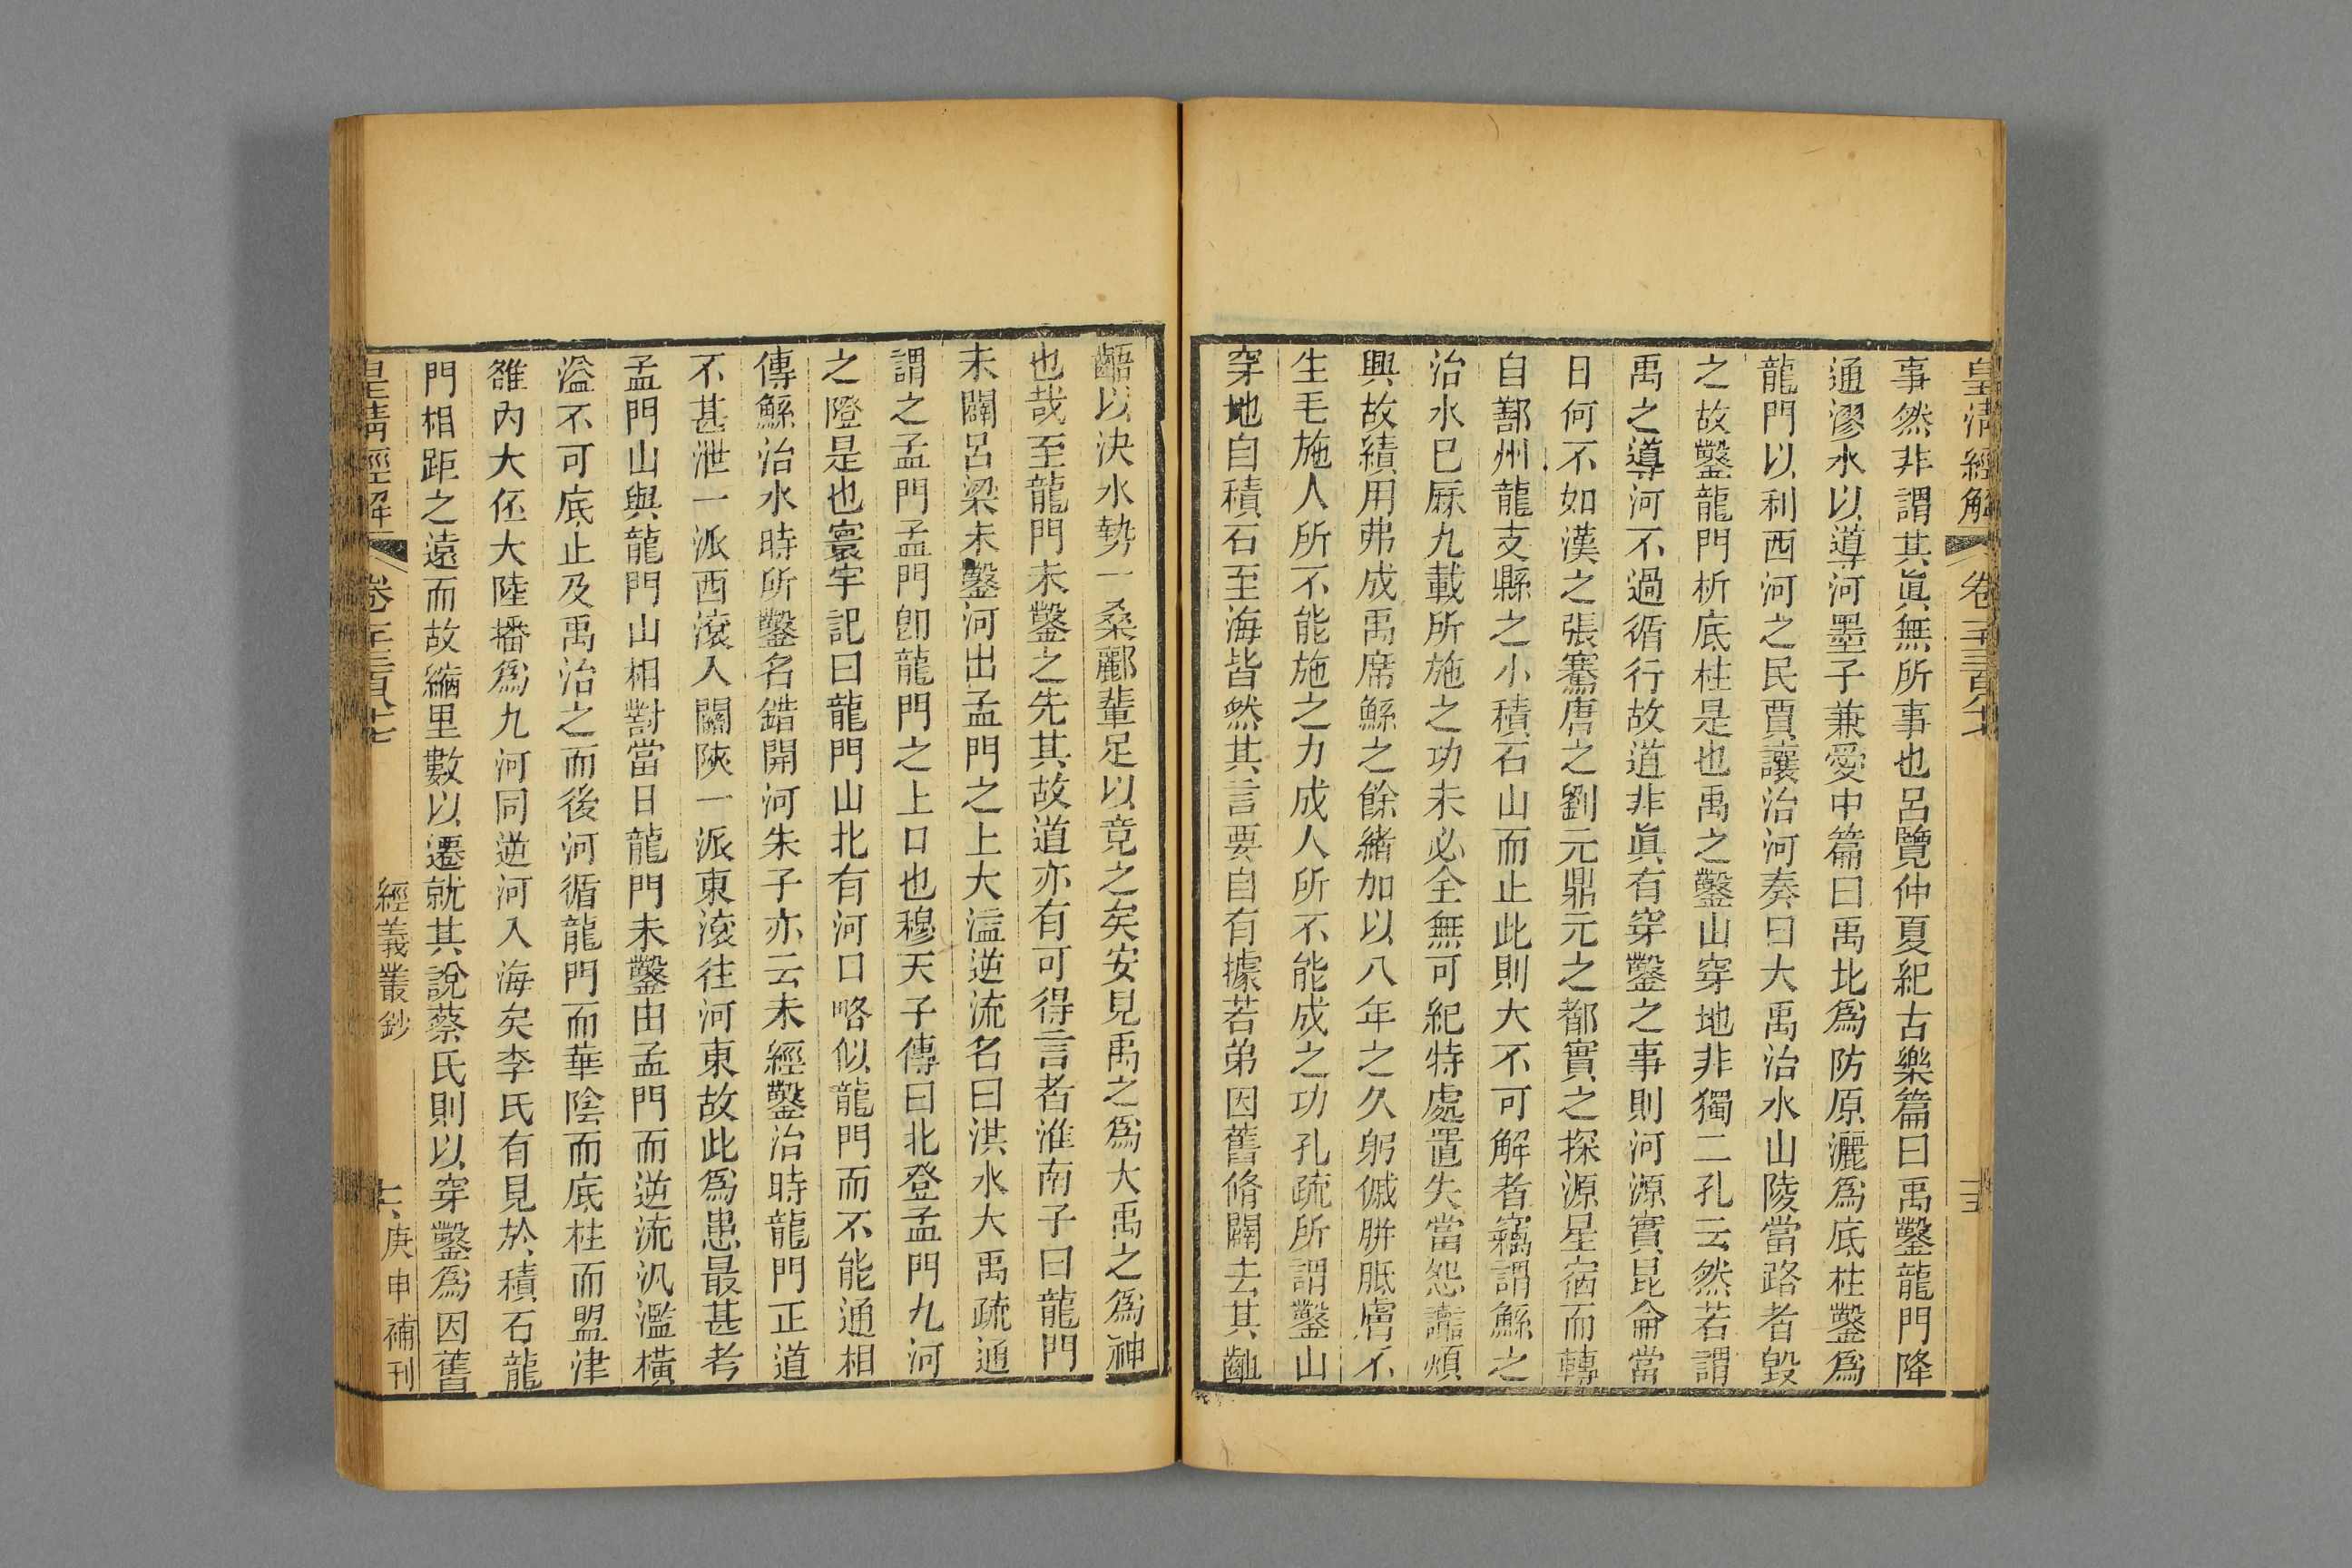 皇清經解
卷一千三百八十七
十五
事然非謂其眞無所事也呂覽仲夏紀古樂篇曰禹鑿龍門降
通漻水以導河墨子兼愛中篇曰禹北爲防原灑爲底柱鑿爲
龍門以利西河之民賈讓治河奏曰大禹治水山陵當路者毀
之故鑿龍門析底柱是也禹之鑿山穿地非獨二孔云然若謂
禹之導河不過循行故道非眞有穿鑿之事則河源實昆侖當
日何不如漢之張騫唐之劉元鼎元之都實之探源星宿而轉
自鄯州龍支縣之小積石山而止此則大不可解者竊謂鯀之
治水巳厤九載所施之功未必全無可紀特處置失當怨讟煩
興故績用弗成禹席鯀之餘緒加以八年之久躬傶胼胝膚不
生毛施人所不能施之力成人所不能成之功孔疏所謂鑿山
穿地自積石至海皆然其言要自有據若弟因舊脩闢去其齟
齬以決水勢一桑酈輩足以竟之矣安見禹之爲大禹之爲神
也哉至龍門未鑿之先其故道亦有可得言者淮南子曰龍門
未闢呂梁未鑿河出孟門之上大溢逆流名曰洪水大禹疏通
謂之孟門孟門卽龍門之上口也穆天子傳曰北登孟門九河
之隥是也寰宇記曰龍門山北有河口略似龍門而不能通相
傳鯀治水時所鑿名錯開河朱子亦云未經鑿治時龍門正道
不甚泄一派西滾入關陝一派東滾往河東故此爲患最甚考
孟門山與龍門山相對當日龍門未鑿由孟門而逆流汎濫橫
溢不可底止及禹治之而後河循龍門而華陰而底柱而盟津
雒內大伾大陸播爲九河同逆河入海矣李氏有見於積石龍
門相距之遠而故縮里數以遷就其說蔡氏則以穿鑿爲因舊
皇清經解
卷一千三百八十七
經義叢鈔
十六
庚申補刊